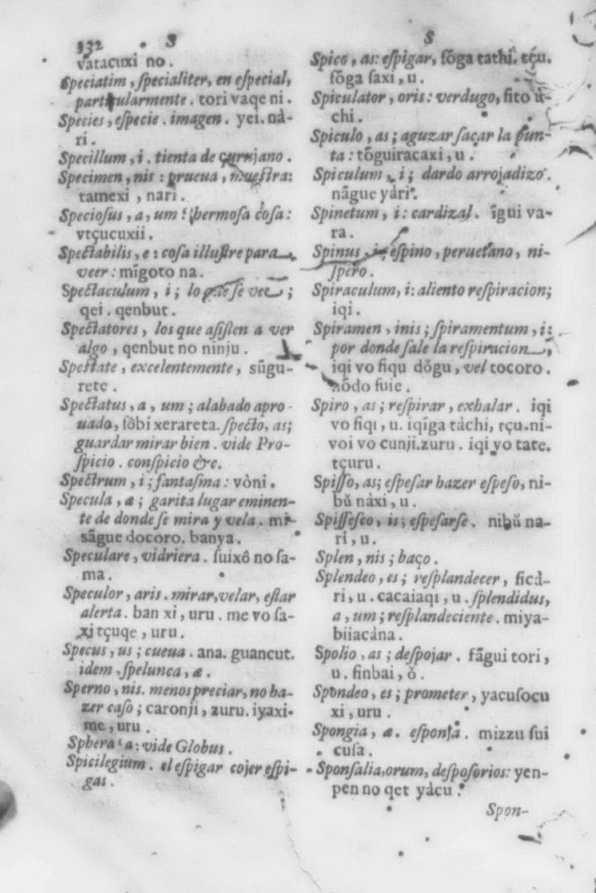 132 S
vatacuxi no.
Speciatim, specialiter, en especial,
particularmente. tori vaqe ni.
Species, especie. imagen. yei. nà-
ri.
Specillum, i. tienta de çurujano.
Specimen, nis: prueua, muestra:
tamexi, nari.
Speciosus, a, um: hermosa cosa:
vtçucuxii.
Spectabilis, e: cosa illustre para
veer: mĩgoto na.
Spectaculum, i; lo que se vee;
qei. qenbut.
Spectatores, los que asisten a ver
algo, qenbut no ninju.
Spectate, excelentemente, sũgu-
rete.
Spectatus, a, um; alabado apro-
uado, sŏbi xerareta. specto, as;
guardar mirar bien. vide Pro-
spicio. conspicio &c.
Spectrum, i; fantasma: vòni.
Specula, æ; garita lugar eminen-
te de donde se mira y vela. mi-
sãgue docoro. banya.
Speculare, vidriera. suixŏ no sa-
ma.
Speculor, aris. mirar, velar, estar
alerta. ban xi, uru. me vo sa-
xi tçuqe, uru.
Specus, us; cueua. ana. guancut.
idem. spelunca, æ.
Sperno, nis. menospreciar, no ha-
zer caso; caronji, zuru. iyaxi-
me, uru.
Sphera a: vide Globus.
Spicilegium. el espigar cojer espi-
gas.
S
Spico, as: espigar, fŏga tathi. tçu.
fŏga saxi, u.
Spiculator, oris: verdugo, fito
chi.
Spiculo, as; aguzar saçar la pun-
ta: tŏguiracaxi, u.
Spiculum, i; dardo arrojadizo.
nãgue yári.
Spinetum, i: cardizal. ĩgui va-
ra.
Spinus, i; espino, peruetano, ni-
spero.
Spiraculum, i: aliento respiracion;
iqi.
Spiramen, inis; spiramentum, i:
por donde sale la respiracion,
iqi vo fiqu dŏgu, vel tocoro.
nŏdo fuie.
Spiro, as; respirar, exhalar. iqi
vo fiqi, u. iqĩga táchi, tçu. ni-
voi vo cunji. zuru. iqi vo tate.
tçuru.
Spisso, as; espesar hazer espeso, ni-
bŭ náxi, u.
Spissesco, is; espesarse. nibŭ na-
ri, u.
Splen, nis; baço.
Splendeo, es; resplandecer, ficà-
ri, u. cacaiaqi, u. splendidus,
a, um; resplandeciente. miya-
biiacána.
Spolio, as; despojar. fãgui tori,
u. finbai, ŏ.
Spondeo, es; prometer, yacusocu
xi, uru.
Spongia, æ. esponja. mizzu sui
cusa.
Sponsalia, orum, desposorios: yen-
pen no qet yácu.
Spon-